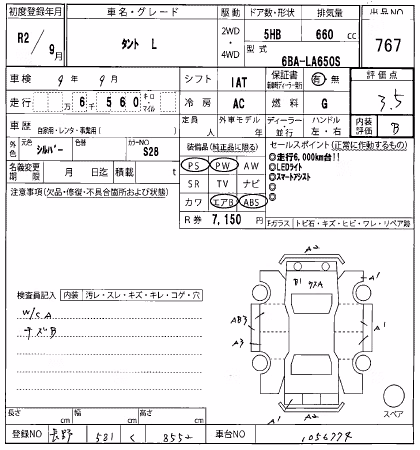 初度登録年月 車名・グレード 駆動 ドア数・形状 排気量 出品NO
R2/9月 タント L 2WD・4WD 5HB 660 cc 767
型式 6BA-LA650S
車検 9年 9月 シフト IAT 保証書 有・無 評価点 3.5
走行 万 6千 560 キロ・マイル 冷房 AC 燃料 G
車歴 自家用・レンタ・事業用( ) 定員 人 外車モデル 年 ディーラー・並行 ハンドル 左・右 内装評価 B
外色 元色 シルバー 色替 カラーNO S28
装備品(純正品に限る) セールスポイント(正常に作動するもの)
名義変更期限 月 日迄 積載 t
PS PW AW ◎走行6,000km台!!
◎LEDライト
SR TV ナビ ◎スマートアシスト
注意事項(欠品・修復・不具合箇所および状態)
カワ エアB ABS ◎
◎
R券 7,150 円
Fガラス トビ石・キズ・ヒビ・ワレ・リペア跡
検査員記入 内装 汚レ・スレ・キズ・キレ・コゲ・穴
W/CA
キズB
A2
A1
B1
AB3
A3
A1
A1
A2
スペア
長さ cm 幅 cm 高さ cm
登録NO 長野 581 く 8552 車台NO 1056774